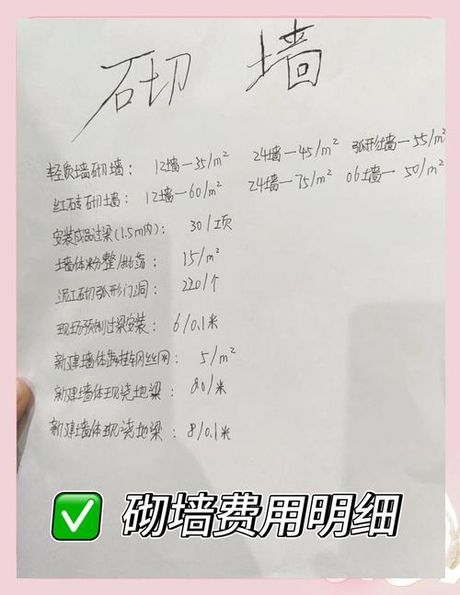 砌墙
轻质墙砌墙：12墙—35/m² 24墙—45/m² 弧形墙—55/m²
红砖砌墙：12墙—60/m² 24墙—75/m² 06墙—50/m²
安装成品过梁(1.5m内)：30/项
墙体粉整/批荡：15/m²
泥工砌弧形门洞：220/个
现场预制过梁安装：6/0.1米
新建墙体挂钢丝网：5/m²
新建墙体现浇地梁：80/米
新建墙体现浇地梁：8/0.1米
砌墙费用明细